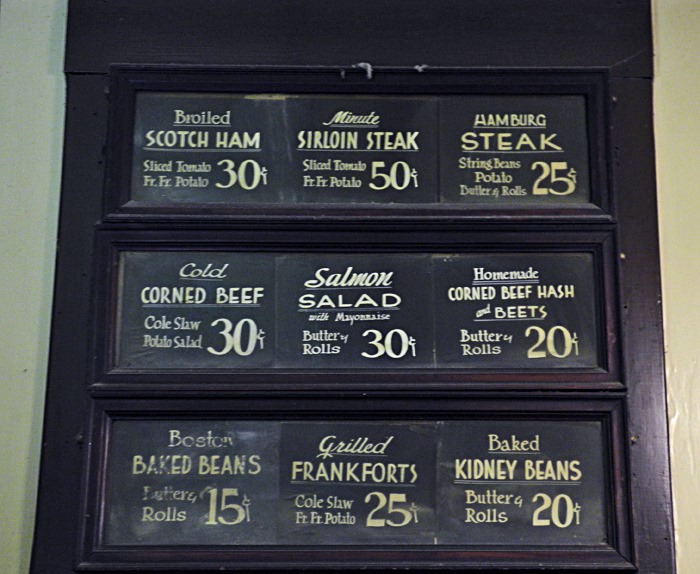 Broiled
SCOTCH HAM
Sliced Tomato
Fr. Fr. Potato
30¢
Minute
SIRLOIN STEAK
Sliced Tomato
Fr. Fr. Potato
50¢
HAMBURG
STEAK
String Beans
Potato
Butter & Rolls
25¢
Cold
CORNED BEEF
Cole Slaw
Potato Salad
30¢
Salmon
SALAD
with Mayonnaise
Butter &
Rolls
30¢
Homemade
CORNED BEEF HASH
and BEETS
Butter &
Rolls
20¢
Boston
BAKED BEANS
Butter &
Rolls
15¢
Grilled
FRANKFORTS
Cole Slaw
Fr. Fr. Potato
25¢
Baked
KIDNEY BEANS
Butter &
Rolls
20¢